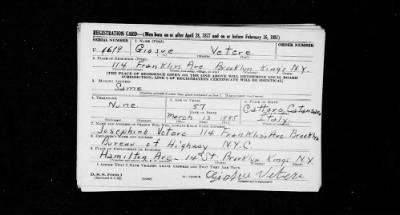 REGISTRATION CARD—(Men born on or after April 28, 1877 and on or before February 16, 1897)
SERIAL NUMBER 1. NAME (Print) ORDER NUMBER
U 1619 Giosue Vetere
2. PLACE OF RESIDENCE (Print)
114 Franklin Ave Brooklyn Kings N.Y.
[THE PLACE OF RESIDENCE GIVEN ON THE LINE ABOVE WILL DETERMINE LOCAL BOARD
JURISDICTION; LINE 2 OF REGISTRATION CERTIFICATE WILL BE IDENTICAL]
3. MAILING ADDRESS
Same
4. TELEPHONE 5. AGE IN YEARS 6. PLACE OF BIRTH
None 57
DATE OF BIRTH
March 13 1885 Italy
7. NAME AND ADDRESS OF PERSON WHO WILL ALWAYS KNOW YOUR ADDRESS
Josephine Vetere 114 Franklin Ave Brooklyn
8. EMPLOYER'S NAME AND ADDRESS
Bureau of Highway N.Y.C
9. PLACE OF EMPLOYMENT OR BUSINESS
Hamilton Ave - 14th St. Brooklyn Kings N.Y
I AFFIRM THAT I HAVE VERIFIED ABOVE ANSWERS AND THAT THEY ARE TRUE.
D. S. S. Form 1
Giosue Vetere